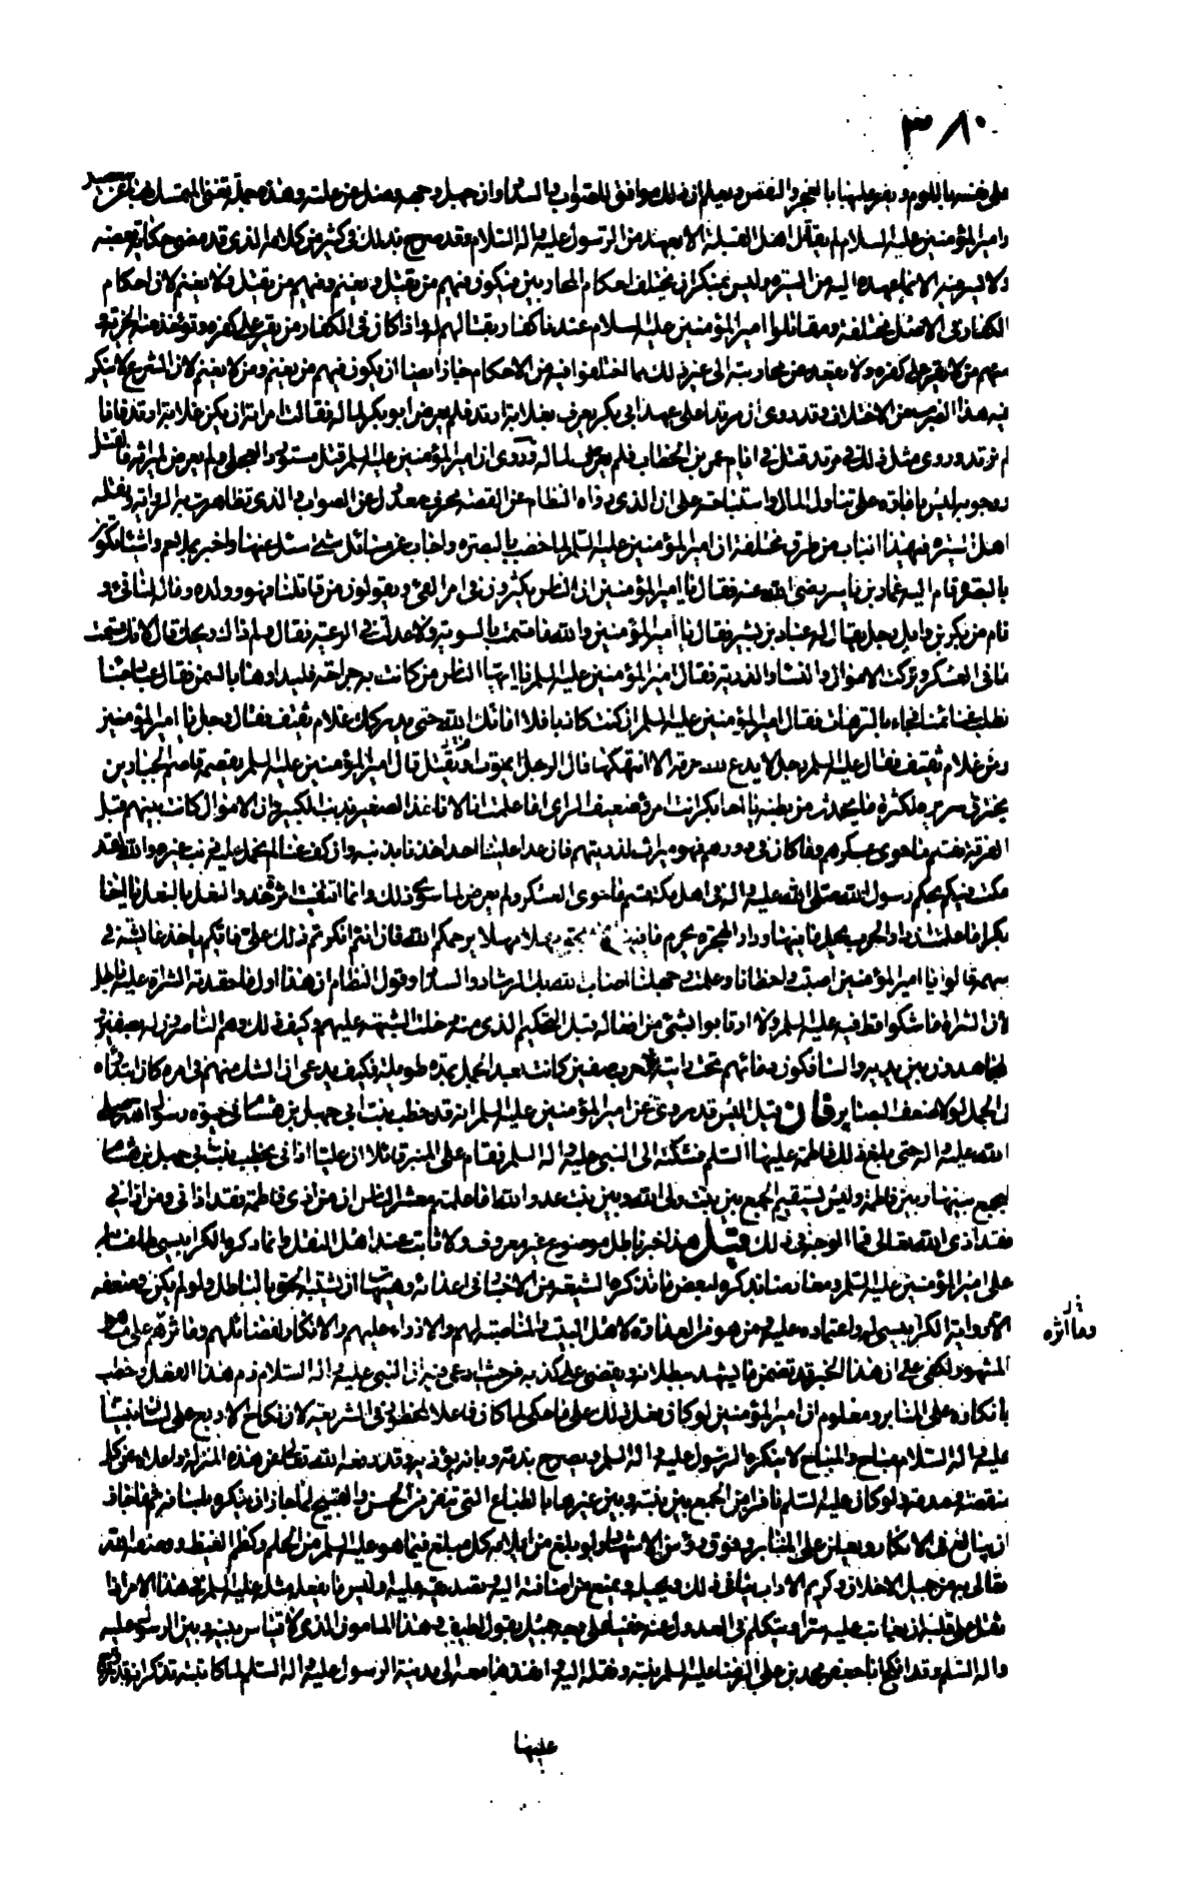 ٣٨٠
على نفسها باللوم ويقر عليها بالعجز والنقص ويعلم ان ذلك موافق للصواب والسداد وان جهل وجهه وضل عن علته وهذه جملة تغنى المتمسك بها عن
وامير المؤمنين عليه السلام لم يقاتل اهل القبلة الا بعهد من الرسول عليه واله السلام وقد صرح بذلك فى كثير من كلامه الذى قد مضى حكاية بعضه
ولا سير فيهم الا بما عهده اليه من السيرة وليس بمنكر ان يختلف احكام المحاربين فيكون فيهم من يقتل ويغنم وفيهم من يقتل ولا يغنم لان احكام
الكفار فى الاصل مختلفة ومقاتلوا امير المؤمنين عليه السلام عندنا كفار بقتالهم له واذا كان فى الكفار من يقر على كفره وتؤخذ منه الجزية و
منهم من لا يقر على كفره ولا يقعد عن محاربته الى غير ذلك مما اختلفوا فيه من الاحكام جاز ايضا ان يكون فيهم من يغنم ومن لا يغنم لان الشرع لا ينكر
فيه هذا الضرب من الاختلاف وقد روى ان مرتدا على عهد ابى بكر يعرف بعلاثة ارتد فلم يعرض ابو بكر لماله فقالت امراته ان يكن علاثة ارتد فانا
لم نرتد وروى مثل ذلك فى مرتد قتل فى ايام عمر بن الخطاب فلم يعرض لماله وروى ان امير المؤمنين عليه السلم قتل مستورد العجلى ولم يعرض لميراثه فالقتل
ووجوبه ليس بامارة على تناول المال واستباحته على ان الذى رواه النظام من القصة محرف معدول عن الصواب والذى تظاهرت به الرواية ونقله
اهل السيرة فى هذا الباب من طرق مختلفة ان امير المؤمنين عليه السلم لما خطب بالبصرة واجاب عن مسائل شتى سئل عنها واخبر بملاحم واشياء تكون
بالبصرة قام اليه عمار بن ياسر رضى الله عنه فقال يا امير المؤمنين ان الناس يكثرون فى امر الفىء ويقولون من قاتلنا فهو وولده وماله لنا فىء و
قام من بكر بن وايل رجل يقال له عباد بن بشير فقال يا امير المؤمنين والله ما قسمت بالسوية ولا عدلت فى الرعية فقال ولم ذاك ويحك قال لانك قسمت
ما فى العسكر وتركت الاموال والنساء والذرية فقال امير المؤمنين عليه السلم يا ايها الناس من كانت به جراحة فليداوها بالسمن فقال عباد جئنا
نطلب غنائمنا فجاءنا بالترهات فقال امير المؤمنين عليه السلم ان كنت كاذبا فلا اماتك الله حتى يدركك غلام ثقيف فقال رجل يا امير المؤمنين
ومن غلام ثقيف فقال عليه السلم رجل لا يدع لله حرمة الا انتهكها قال الرجل ايموت او يقتل قال امير المؤمنين عليه السلم يقصمه قاصم الجبارين
يحترق سريره لكثرة ما يحدث من بطنه يا اخا بكر انت امرؤ ضعيف الراى اما علمت انا لا ناخذ الصغير بذنب الكبير وان الاموال كانت بينهم قبل
الفرقة يقسم ما حوى عسكرهم وما كان فى دورهم فهو ميراث لذريتهم فان عدا علينا احد اخذناه بذنبه وان كف عنا لم نحمل عليه ذنب غيره والله لقد
حكمت فيكم بحكم رسول الله صلى الله عليه واله فى اهل مكة قسم ما حوى العسكر ولم يعرض لما سوى ذلك وانما اتبعت اثره حذو النعل بالنعل يا اخا
بكر اما علمت ان دار الحرب يحل ما فيها ودار الهجرة يحرم ما فيها مهلا مهلا يرحمكم الله فان انتم انكرتم ذلك على فايكم ياخذ عايشة فى
سهمه قالوا يا امير المؤمنين اصبت واخطانا وعلمت وجهلنا اصاب الله بك الرشاد والسداد وقول النظام ان هذا اول ما حقدته الشراة عليه باطل
لان الشراة ما شكوا قط فيه عليه السلم ولا ارتابوا بشىء من افعاله قبل التحكيم الذى منه دخلت الشبهة عليهم وكيف ذلك وهم الناصرون له بصفين و
المجاهدون بين يديه والسافكون دماءهم تحت رايته وحرب صفين كانت بعد الجمل بمدة طويلة فكيف يدعى ان الشك منهم فى امره كان ابتداه
فى الجمل لولا ضعف البصاير فان قيل اليس قد روى عن امير المؤمنين عليه السلم انه قد خطب بنت ابى جهل بن هشام فى حيوة رسول الله صلى
الله عليه واله حتى بلغ ذلك فاطمة عليها السلم فشكته الى النبى عليه واله السلم فقام على المنبر قائلا ان عليا اذانى يخطب بنت ابى جهل بن هشام
ليجمع بينها وبين فاطمة وليس يستقيم الجمع بين بنت ولى الله وبين بنت عدو الله اما علمتم معشر الناس ان من اذى فاطمة فقد اذانى ومن اذانى
فقد اذى الله تعالى فما الوجه فى ذلك قيل هذا خبر باطل موضوع غير معروف ولا ثابت عند اهل النقل وانما ذكره الكرابيسى طاعنا به
على امير المؤمنين عليه السلم ومعارضا بذكره لبعض ما تذكره الشيعة من الاخبار فى اعدائه وهيهات ان يشبه الحق بالباطل ولو لم يكن فى ضعفه
الا رواية الكرابيسى له واعتماده عليه وهو من العداوة لاهل البيت والمناصبة لهم والازراء عليهم والانكار لفضائلهم ومآثرهم على ما هو
وماآثره
المشهور لكفى على ان هذا الخبر قد تضمن ما يشهد ببطلانه ويقضى على كذبه من حيث ادعى فيه ان النبى عليه واله السلام ذم هذا الفعل وخطب
بانكاره على المنابر ومعلوم ان امير المؤمنين لو كان فعل ذلك على ما حكى لما كان فاعلا لمحظور فى الشريعة لان نكاح الاربع على لسان نبينا
عليه واله السلام مباح والمباح لا ينكره الرسول عليه واله السلم ويصرح بذمه وبانه متأذ به وقد رفعه الله تعالى عن هذه المنزلة واعلاه عن كل
منقصة ومذمة ولو كان عليه السلم نافرا من الجمع بين بنته وبين غيرها بالطباع التى تنفر من الحسن والقبيح لما جاز ان ينكره بلسانه ثم ما جاز
ان يبالغ فى الانكار ويعلن به على المنابر وفوق رؤس الاشهاد ولو بلغ من ايلامه كل مبلغ فما هو عليه السلم من الحلم وكظم الغيظ ووصفه الله
تعالى به من جميل الاخلاق وكريم الاداب ينافى ذلك ويحيله ويمنع من اضافته اليه وتصديقه عليه واليس ما يفعله مثله عليه السلم فى هذا الامر اذا
ثقل على قلبه ان يعاتب عليه سرا ويتكلم فى العدول عنه خفيا على وجه جميل بقول لطيف وهذا المامون الذى لا قياس بينه وبين الرسول عليه
واله السلم وقد انكح ابا جعفر محمد بن على الرضا عليه السلم بنته ونقلها اليه وانفذها معه الى مدينة الرسول عليه واله السلم لما كاتبته تذكر انه قد تزوج
عليها